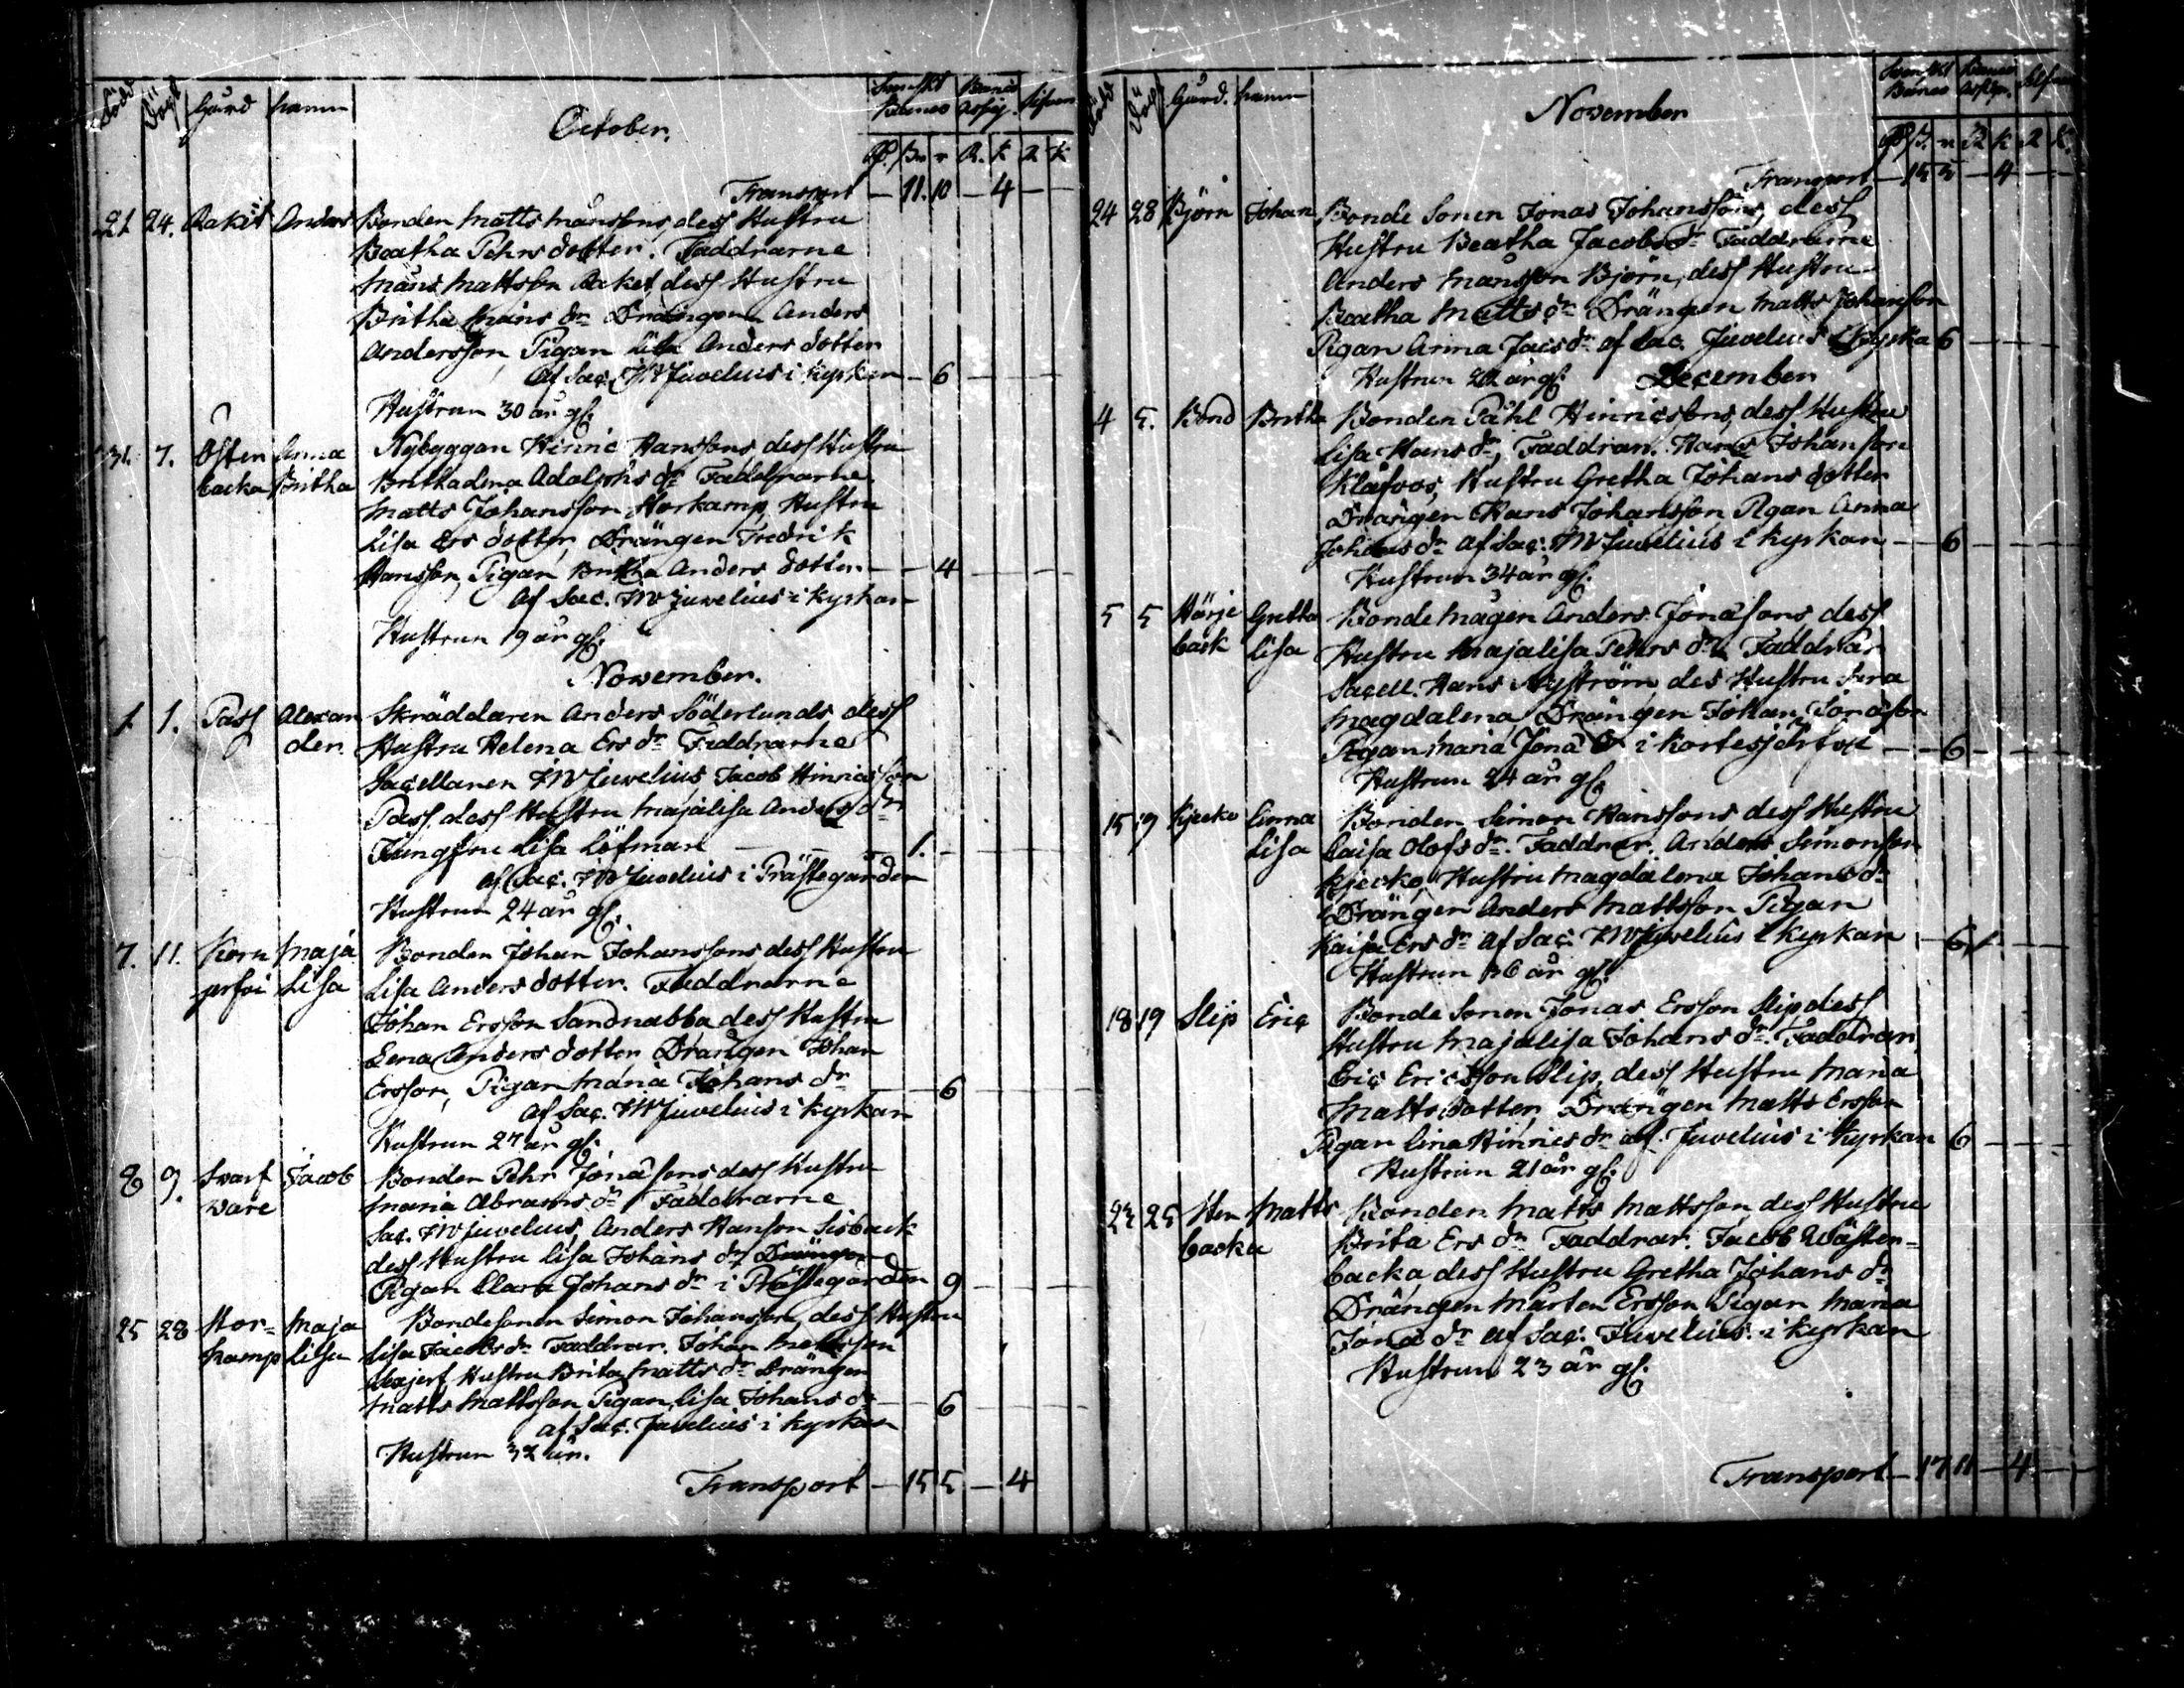 Född Döpt Gård Namn October. Svenskt Banco Banco Assig. Silfver
R. k R k
Transport — 11. 10 — 4 — —
21 24. Rakit Anders Bonden Matts Månssons, dess Hustru
Beatha Pehrs dotter. Faddrarne
Måns Mattson Raket, dess Hustru
Britha Måns dr Drängen Anders
Andersson, Pigan Lisa Anders dotter
af Sac. JW Juvelius i Kyrkan — 6 — — —
Hustrun 30 år gl.
31. 7. Östen Anna Nybyggan Hinric Hanssons dess Hustru
backa Britha Brithalena Adolphs dr Faddrarne
Matts Johansson Storkamp, Hustru
Lisa Ers dotter, Drängen Fredrik
Hansson, Pigan Britha Anders dotter — 4 — — —
af Sac. JW Juvelius i Kyrkan
Hustrun 19 år gl.
November.
1 1. Pass Alexan Skräddaren Anders Söderlunds, dess
der. Hustru Helena Ers dr Faddrarne
Sacellanen JW Juvelius, Jacob Hinricsson
Pass, dess Hustru Majalisa Anders dr
Jungfru Lisa Löfman — — — 1. — — —
af Sac. JW Juvelius i Prästegården
Hustrun 24 år gl.
7. 11. Korn Maja Bonden Johan Johanssons dess Hustru
Lisa Lisa Anders dotter. Faddrarne
Johan Ersson Sandnabba dess Hustru
Lena Anders dotter, Drängen Johan
Ersson, Pigan Maria Johans dr — 6 — — —
af Sac. JW Juvelius i Kyrkan
Hustrun 27 år gl.
8 9. Svarf Jacob Bonden Pehr Jonasons dess Hustru
vare Maria Abrams dr Faddrarne
Sac. JW Juvelius, Anders Hanson Sisback
dess Hustru Lisa Johans dr Drängen
Pigan Clara Johans dr i Prästegården 9 — — —
25 28 Stor= Maja Bondesonen Simon Johansson, dess Hustru
kamp Lisa Lisa Jacobs dr Faddrar. Johan Mattsson
Hustru Brita Matts dr Drängen
Matts Mattsson Pigan Lisa Johans dr — 6 — — —
af Sac. Juvelius i Kyrkan
Hustrun 32 år.
Transport — 15 5 — 4
Född Döpt Gård. Namn November Svenskt Banco Silfver
R k R k.
Transport — 15 5 — 4 — —
24 28 Björn Johan Bonde Sonen Jonas Johanssons, dess
Hustru Beatha Jacobs dr Faddrarne
Anders Månsson Björn, dess Hustru
Beatha Matts dr Drängen Matts Johansson
Pigan Anna Jacs dr af Sac. Juvelius i Kyrka 6 — — —
Hustrun 22 år gl. December
4 5. Bond Britha Bonden Påhl Hinricsons, dess Hustru
Lisa Hans dr, Faddrar. Hans Johansson
Klåfvos, Hustru Gretha Johans dotter
Drängen Hans Johansson Pigan Anna
Johans dr af Sac. JW Juvelius i Kyrkan — 6 — — —
Hustrun 34 år gl.
5 5 Härje Gretha Bonde Mågen Anders Jonasons dess
back Lisa Hustru Majalisa Pehrs dr Faddrar
Sacell. Hans Nyström, des Hustru Sara
Magdalena, Drängen Johan Jonasson
Pigan Maria Jona dr i Kortesjärfvi — 6 — — —
Hustrun 24 år gl.
15 19 Kjecko Anna Bonden Simon Hanssons dess Hustru
Lisa Caisa Olofs dr. Faddrar. Anders Simonson
Kjecko, Hustru Magdalena Johans dr
Drängen Anders Mattsson Pigan
Kaisa Ers dr af Sac. JW Juvelius i Kyrkan — 6 — — —
Hustrun 36 år gl.
18 19 Slip Eric Bonde Sonen Jonas Ersson Slip dess
Hustru Majalisa Johans dr. Faddrar
Eric Ericsson Slip, dess Hustru Maria
Mattsdotter, Drängen Matts Ersson
Pigan Lina Hinrics dr af. Juvelius i Kyrkan 6 — — —
Hustrun 21 år gl.
23 25 Matts Bonden Matts Mattsson dess Hustru
backa Brita Ers dr Faddrar. Jacob Wästen=
backa, dess Hustru Gretha Johans dr
Drängen Mårten Ersson Pigan Maria
Jona dr af Sac. Juvelius. i Kyrkan
Hustrun 23 år gl.
Transport — 17 11 — 4 — —